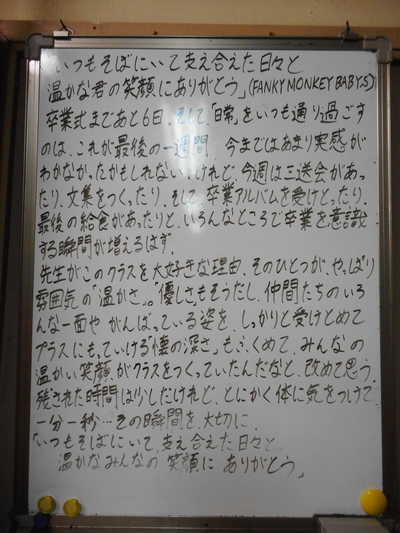 いつもそばにいて支え合えた日々と
温かな君の笑顔にありがとう」(FANKY MONKEY BABYS)
卒業式まであと6日。そして「日常」をいつも通り過ごす
のは、これが最後の一週間。今まではあまり実感が
わかなかったかもしれないけれど、今週は三送会があっ
たり、文集をつくったり、そして卒業アルバムを受けとったり、
最後の給食があったりと、いろんなところで卒業を意識
する瞬間が増えるはず。
先生がこのクラスを大好きな理由。そのひとつが、やっぱり
雰囲気の「温かさ」。「優しさ」もそうだし、仲間たちのいろ
んな一面や がんばっている姿を、しっかりと受けとめて
プラスにもっていける「懐の深さ」もふくめて、みんなの
温かい笑顔がクラスをつくっていたんだなと、改めて思う。
残された時間は少しだけれど、とにかく体に気をつけて、
一分一秒…その瞬間を大切に、
「いつもそばにいて、支え合えた日々と
温かなみんなの 笑顔に ありがとう。」